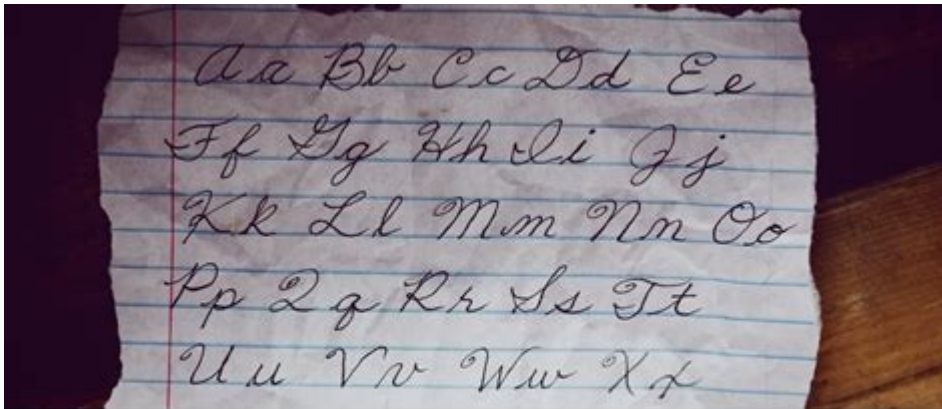 Aa Bb Cc Dd Ee
Ff Gg Hh Ii Jj
Kk Ll Mm Nn Oo
Pp Qq Rr Ss Tt
Uu Vv Ww Xx